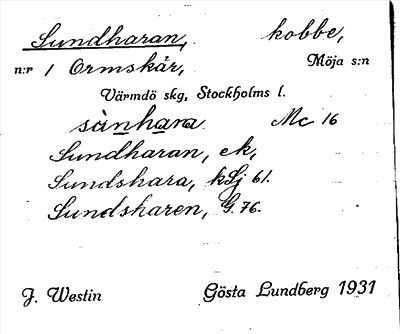 Sundharan, kobbe,
n:r 1 Ormskär, Möja s:n
Värmdö skg, Stockholms l.
sùnhara Mc 16
Sundharan, ek,
Sundshara, kSj 61.
Sundsharen, G. 76.
J. Westin Gösta Lundberg 1931